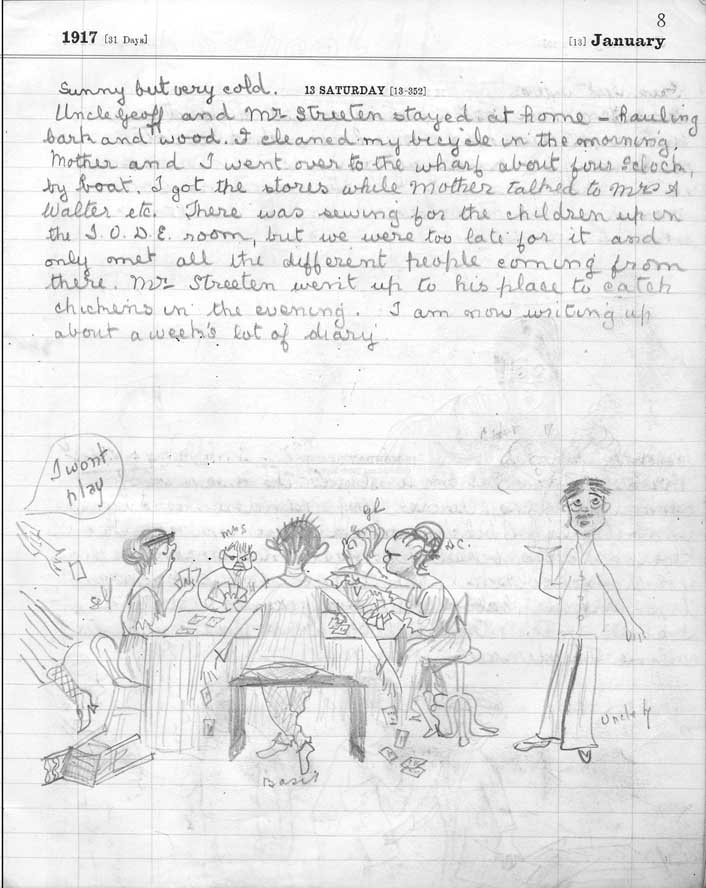 8
1917 [31 Days] [13] January
Sunny but very cold. 13 SATURDAY [13-352]
Uncle Geoff and Mr Streeten stayed at home – hauling
bark and wood. I cleaned my bicycle in the morning.
Mother and I went over to the wharf about four o'clock,
by boat. I got the stores while Mother talked to Mrs A
Walter etc. There was sewing for the children up in
the I.O.D.E. room, but we were too late for it and
only met all the different people coming from
there. Mr Streeten went up to his place to catch
chickens in the evening. I am now writing up
about a week's lot of diary
I wont
play
self
Basil
Uncle G